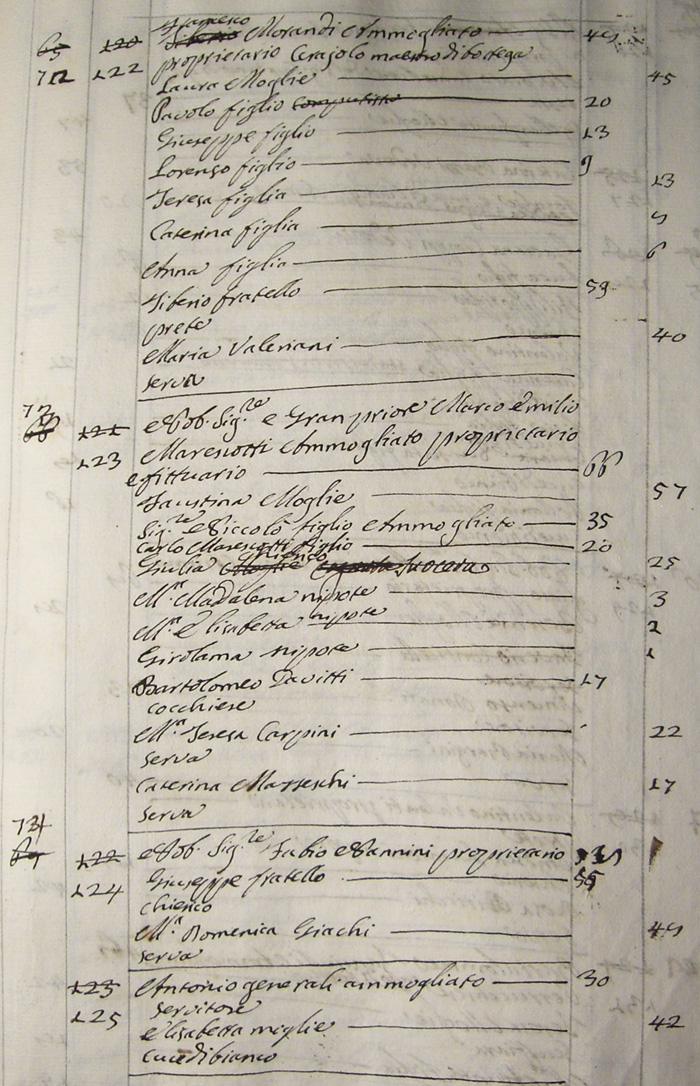 Francesco
65 120 Tiberio Morandi Ammogliato 49
712 122 proprietario Cerajolo maestro di bottega
Laura Moglie 45
Pavolo figlio Computista 20
Giuseppe figlio 13
Lorenzo figlio 9
Teresa figlia 13
Caterina figlia 9
Anna figlia 6
Tiberio fratello 59
prete
Maria Valeriani 40
serva
72
121 Nob. Sig.re e Gran priore Marco Emilio
123 Marescotti Ammogliato proprietario
e fittuario 66
Faustina Moglie 57
Sig.re Niccolò figlio Ammogliato 35
Carlo Marescotti figlio 20
Giulia Suocera 25
M.a Madalena nipote 3
M.a Elisabetta nipote 2
Girolama nipote 1
Bartolomeo Davitti 17
cocchiere
M.a Teresa Carpini 22
serva
Caterina Marreschi 17
serva
122 Nob. Sig.re Fabio Nannini proprietario
124 Giuseppe fratello 55
Chierico
M.a Domenica Giachi 49
serva
123 Antonio generali ammogliato 30
125 Servitore
Elisabetta moglie 42
Cuce di bianco